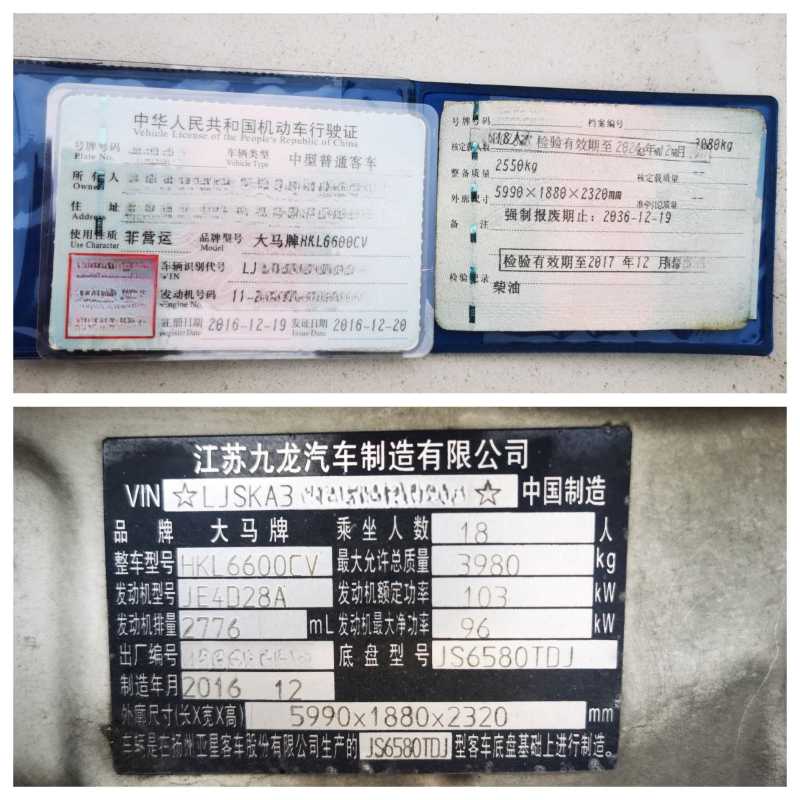 中华人民共和国机动车行驶证
Vehicle License of the People's Republic of China
号牌号码
Plate No.
车辆类型
Vehicle Type
中型普通客车
所有人
Owner
住址
Address
使用性质
Use Character
非营运
品牌型号
Model
大马牌HKL6600CV
车辆识别代号
VIN
LJ
发动机号码
Engine No.
注册日期
Register Date
2016-12-19
发证日期
Issue Date
2016-12-20
号牌号码
档案编号
核定载人数
18人
检验有效期至
整备质量
2550kg
核定载质量
--
外廓尺寸
5990×1880×2320mm
准牵引总质量
--
备注
强制报废期止：2036-12-19
检验有效期至2017年12月
检验记录
柴油
江苏九龙汽车制造有限公司
VIN ☆LJSKA3 ☆ 中国制造
品牌 大马牌 乘坐人数 18 人
整车型号 HKL6600CV 最大允许总质量 3980 kg
发动机型号 JE4D28A 发动机额定功率 103 kW
发动机排量 2776 mL 发动机最大净功率 96 kW
出厂编号 底盘型号 JS6580TDJ
制造年月 2016 12
外廓尺寸(长X宽X高) 5990x1880x2320 mm
车辆是在扬州亚星客车股份有限公司生产的 JS6580TDJ 型客车底盘基础上进行制造。